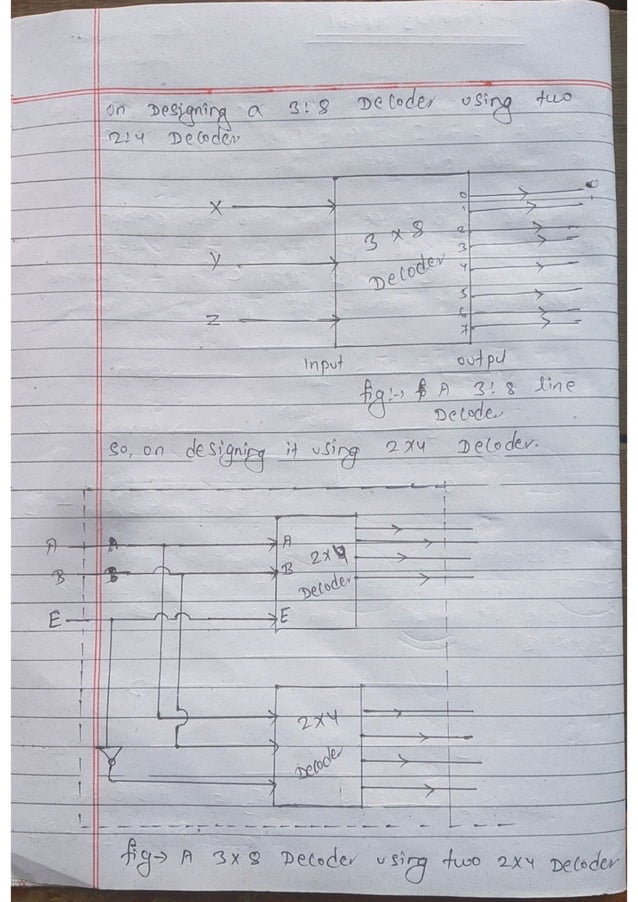 on Designing a 3:8 Decoder using two
2:4 Decoder
X
Y
Z
3 x 8
Decoder
0
1
2
3
4
5
6
7
0
1
Input
output
fig:→ A 3:8 line
Decoder
So, on designing it using 2x4 Decoder.
A
B
E
A
B
A
B
E
2x4
Decoder
2x4
Decoder
fig→ A 3x8 Decoder using two 2x4 Decoder